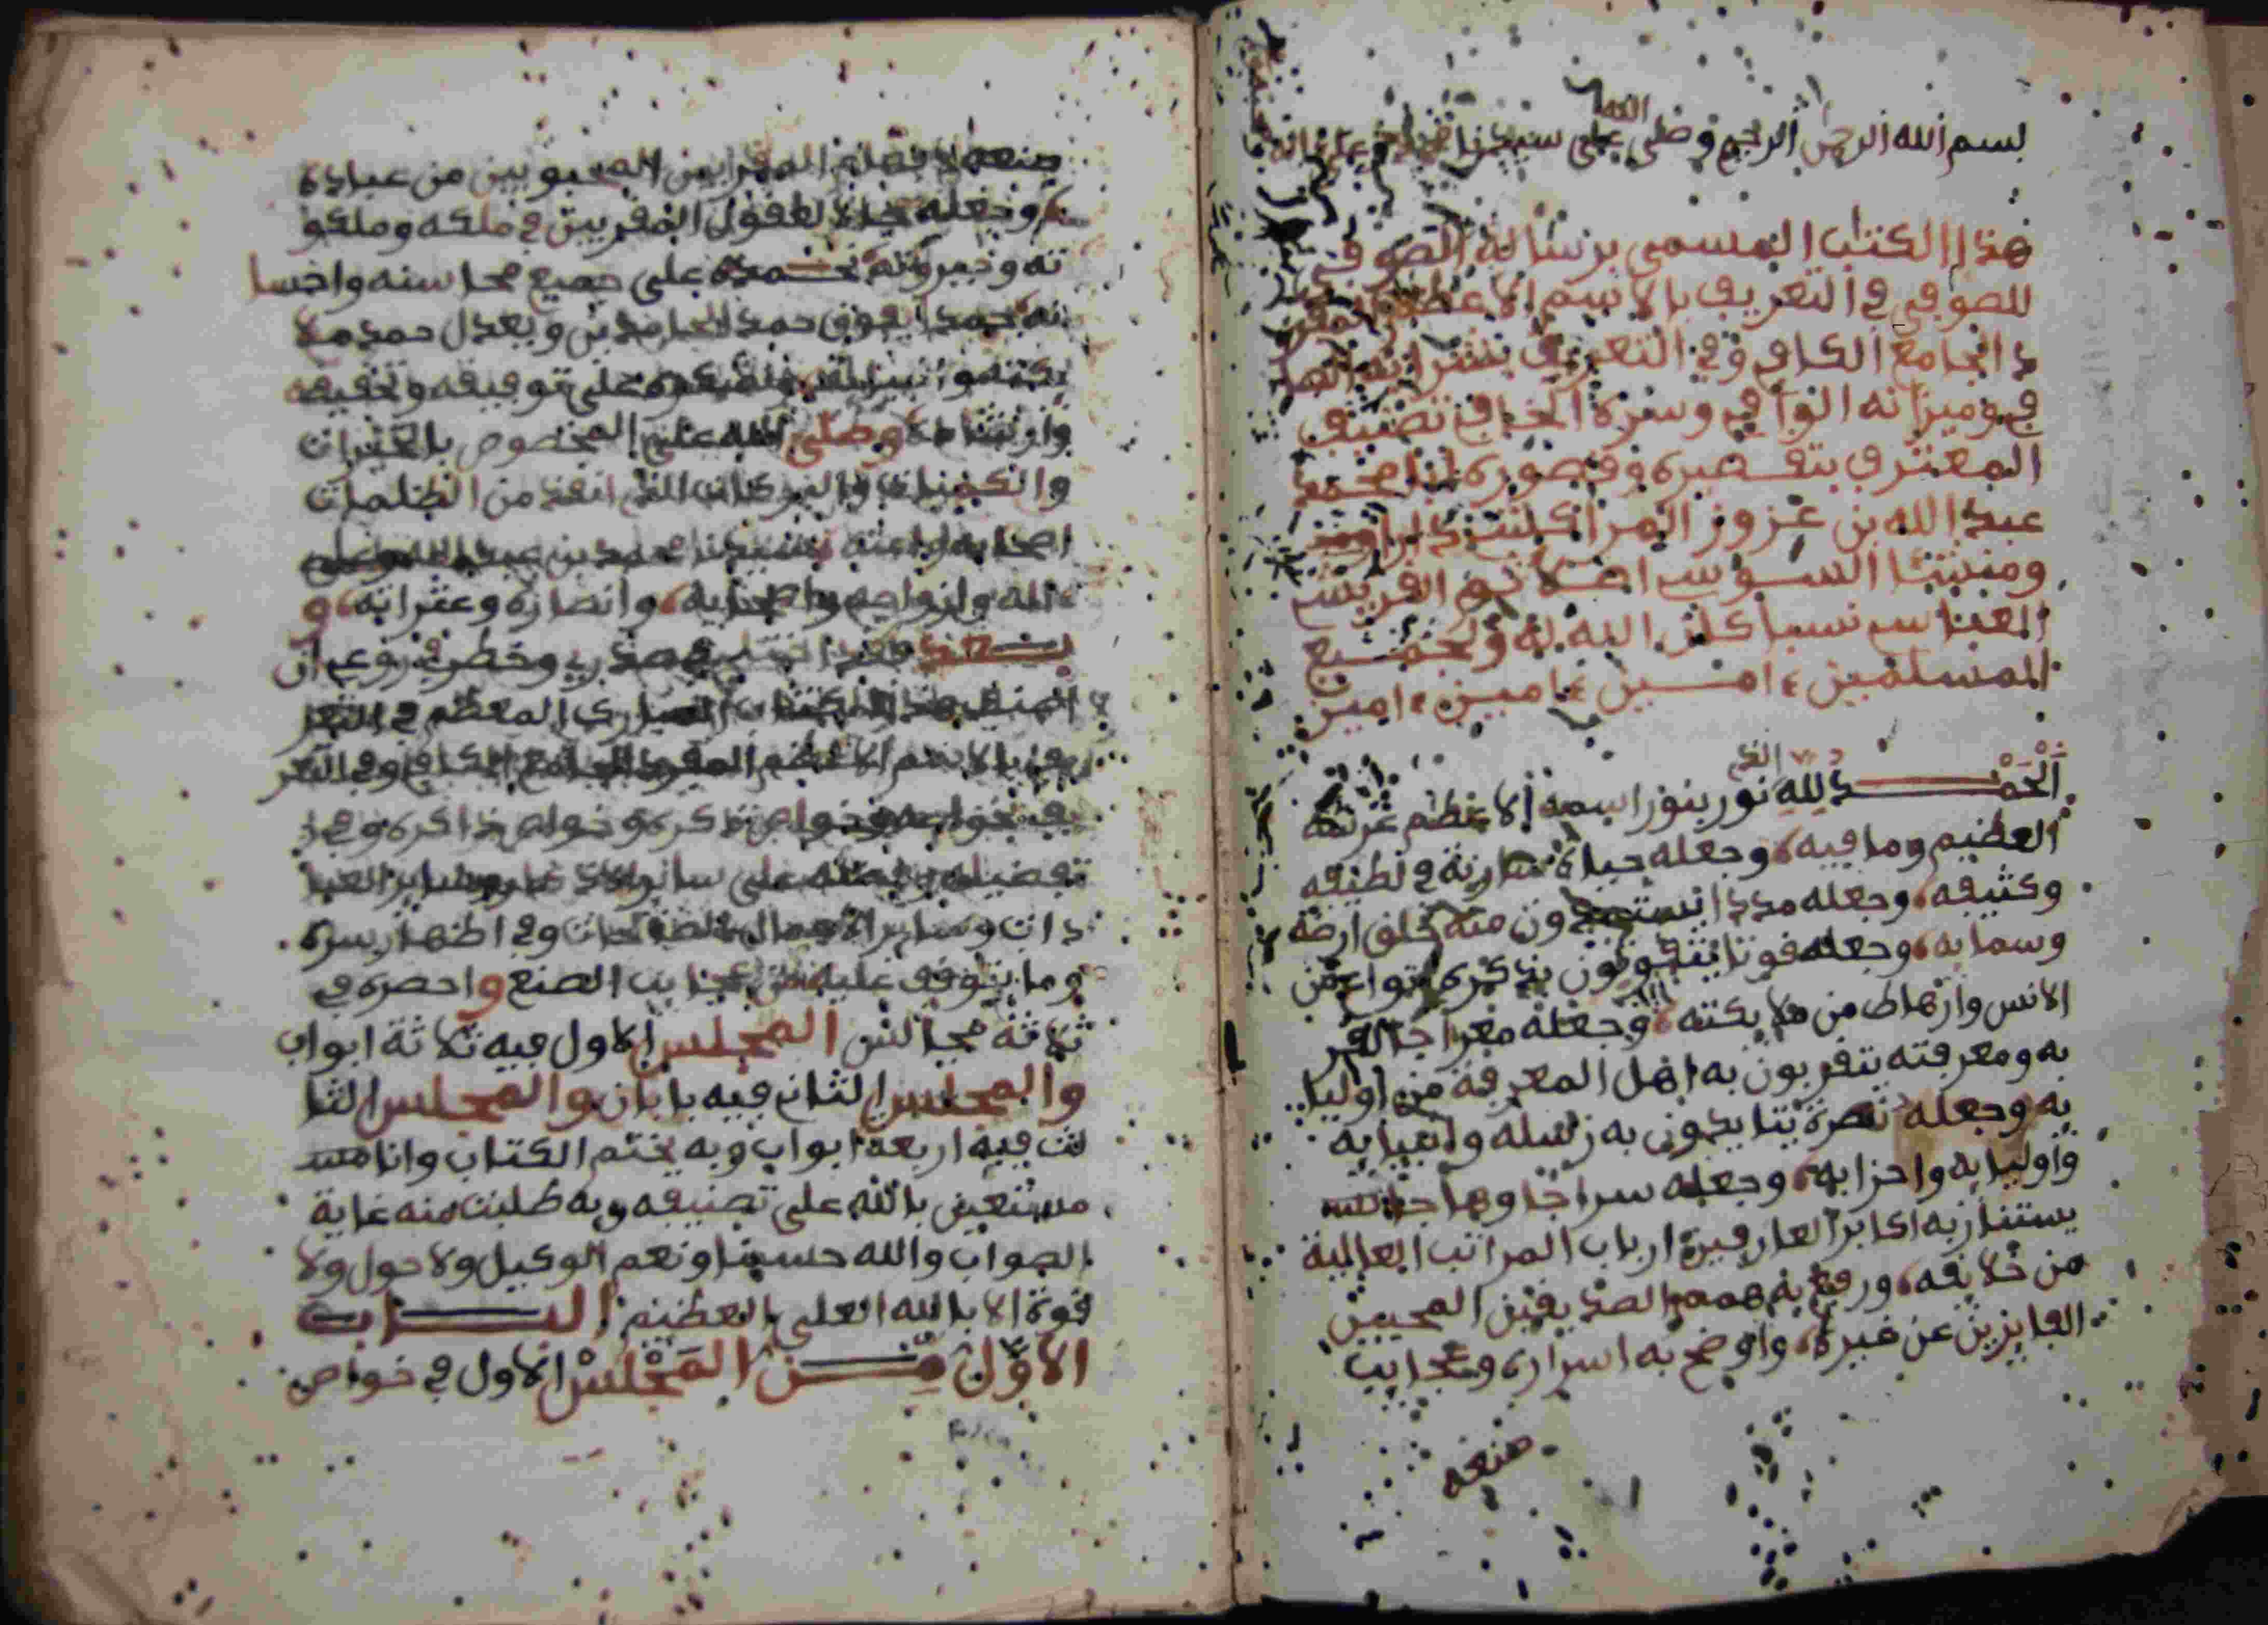 بسم الله الرحمن الرحيم وصلى الله على سيدنا
هذا الكتاب المسمى برسالة الصوفي
للصوفي في التعريف بالاسم الاعظم
د الجامع الكافي وفي التعريف
في وميزانه الوافي وسره الخافي تصنيف
المعترف بتقصيره وقصوره
عبد الله بن عزوز المراكشي دارا
ومنشئا السوسي اصلا ثم القرشي
العباسي نسبا كان الله له ولجميع
المسلمين، امين، امين، امين
الحمد لله الذي نور بنور اسمه الاعظم عرشه
العظيم وما فيه، وجعله حياة سارية في لطيفه
وكثيفه، وجعله مددا يستمدون منه خلق ارضه
وسمايه، وجعله قوتا يتقوتون بذكره انواع من
الانس وارهاط من ملايكته، وجعله معراجا لقر
به ومعرفته يتقربون به اهل المعرفة من اوليا
يه وجعله نصرة يتايدون به رسله وانبيايه
واوليايه واحزابه، وجعله سراجا وهاجا
يستنار به اكابر العارفين ارباب المراتب العالية
من خلايقه، ورفع به همم الصديقين المحبين
الفايزين عن غيره، واوضح به اسراره وعجايب
صنعه
صنعه المحبوبين من عباده
وجعله لعقول المقربين في ملكه وملكو
ته وجبروته نحمده على جميع محاسنه واحسا
نه حمدا يفوق حمد الحامدين ويعدل حمد ملا
يكته وانبيايه ونشكره على توفيقه وتحقيقه
وصلى الله على المخصوص بالخيرات
والبركات الذي انقذ من الظلمات
اصحابه وامته سيدنا محمد بن عبد الله وعلى
اله وازواجه واصحابه، وانصاره وعترته، و
بعد فقد صدري وخطر في روعي ان
اصنف هذا الكتاب المبارك المعظم في التعر
يف بالاسم الاعظم المفرد الجامع الكافي وفي التعر
يف بخواصه وخواص ذكره وخواص ذاكره وفي
تفضيله على ساير
دات وساير الاعمال الصالحات وفي اظهار سره
وما يتوقف عليه من عجايب الصنع واحصره في
ثلاثة مجالس المجلس الاول فيه ثلاثة ابواب
والمجلس الثاني فيه بابان والمجلس الثا
لث فيه اربعة ابواب وبه يختم الكتاب وانا
مستعين بالله على تصنيفه وبه طلبت منه غاية
الصواب والله حسبنا ونعم الوكيل ولا حول ولا
قوة الا بالله العلي العظيم الباب
الاول من المجلس الاول في خواص